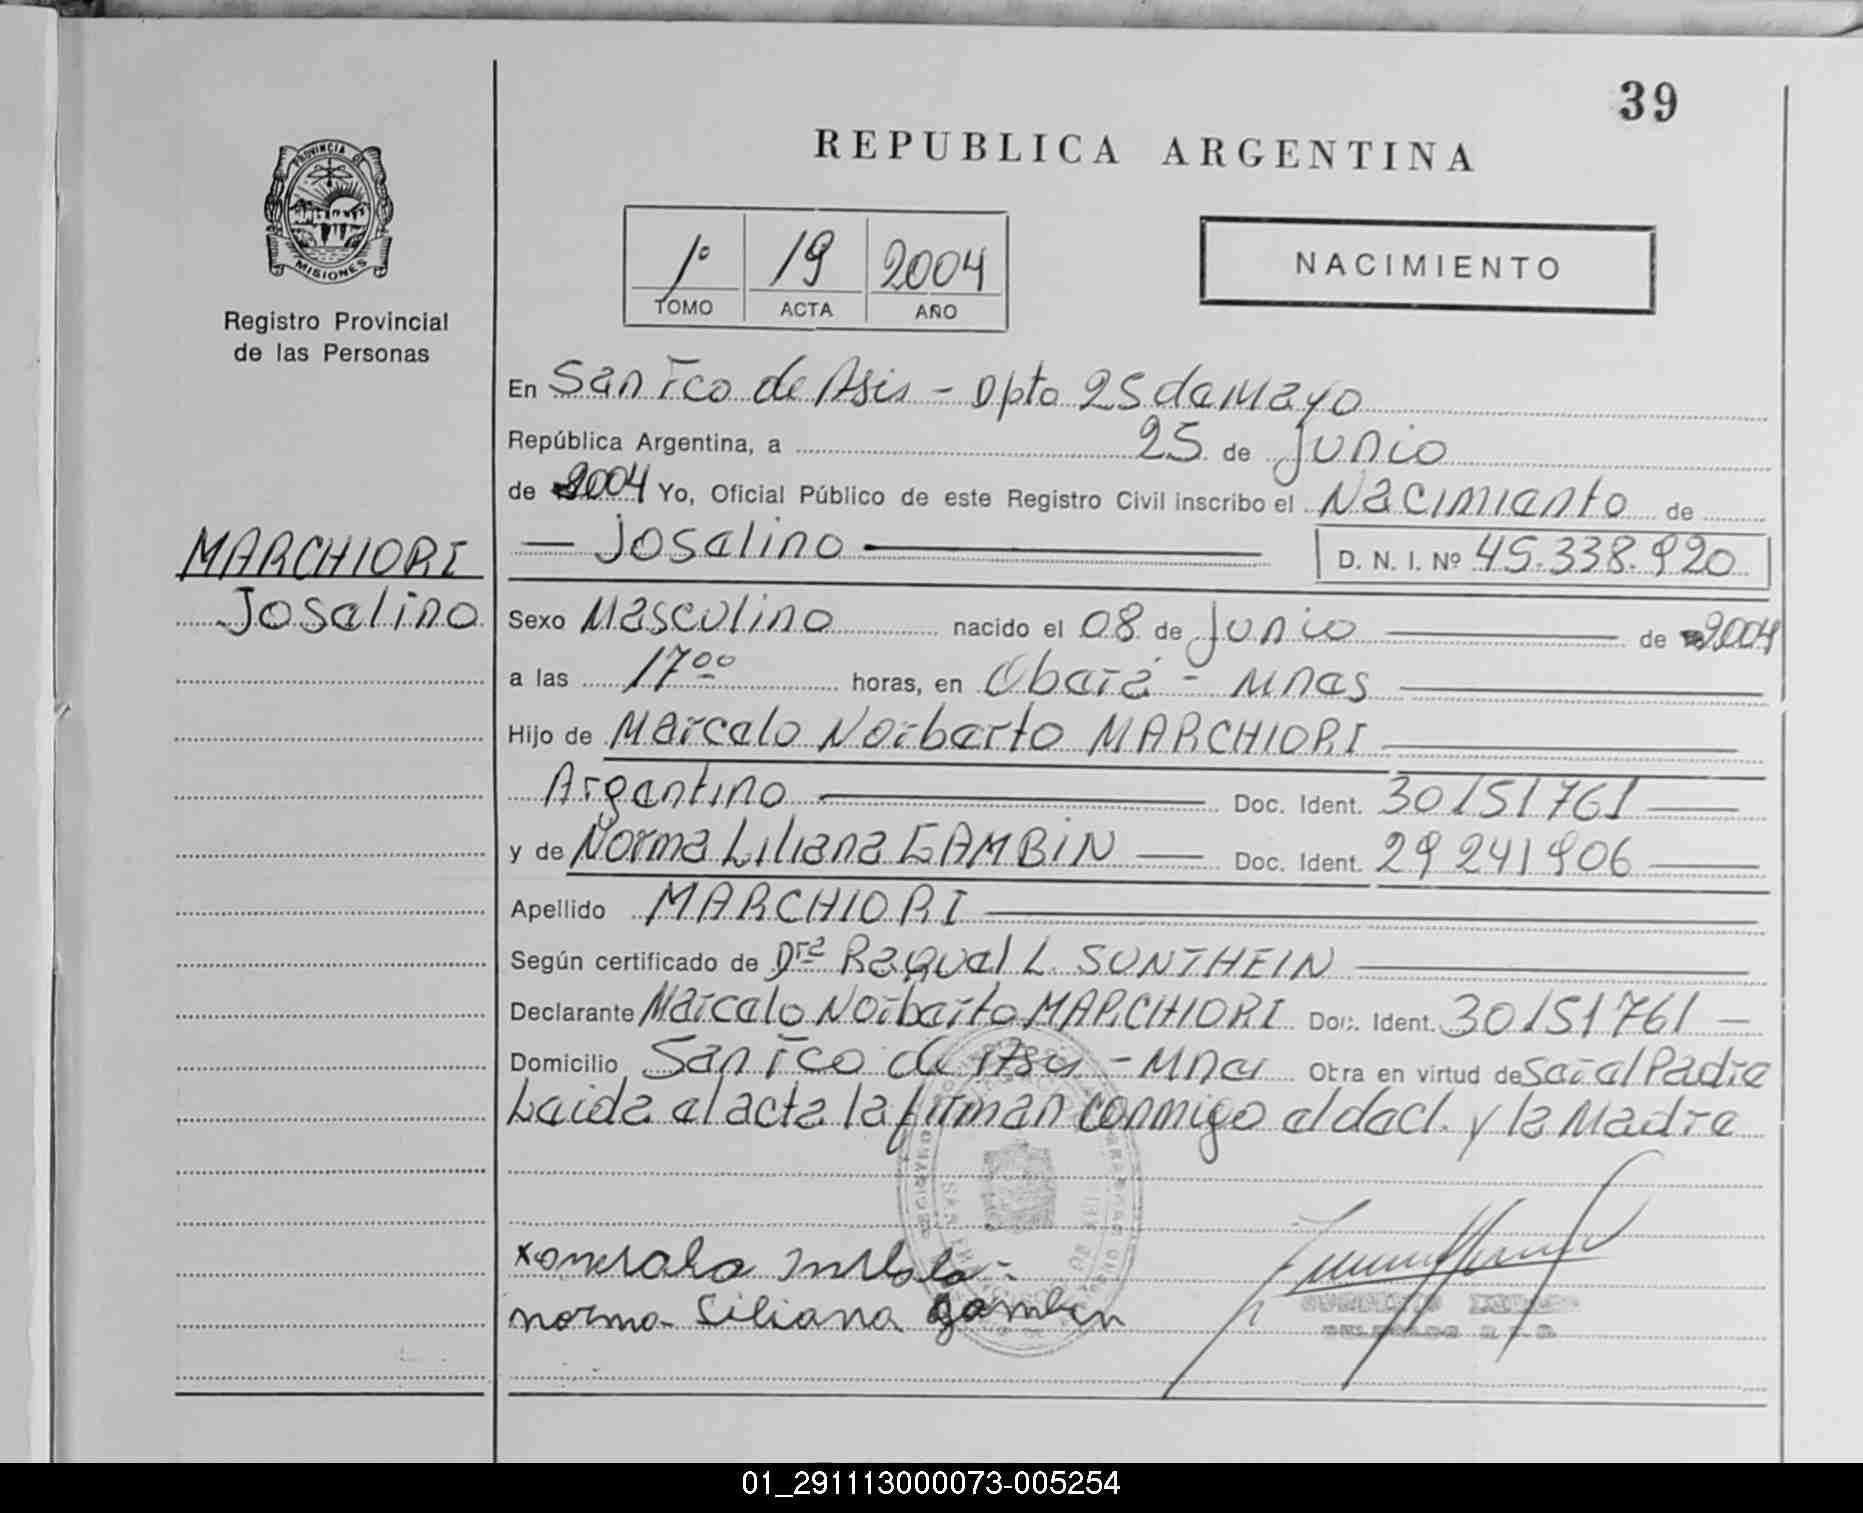 39
REPUBLICA ARGENTINA
PROVINCIA DE
MISIONES
Registro Provincial
de las Personas
1º 19 2004
TOMO ACTA AÑO
NACIMIENTO
En San Fco de Asis - Dpto 25 de Mayo
República Argentina, a 25 de Junio
de 2004 Yo, Oficial Público de este Registro Civil inscribo el Nacimiento de
MARCHIORI
Joselino
— Joselino — D. N. I. Nº 45.338.920
Sexo Masculino nacido el 08 de Junio de 2004
a las 17⁰⁰ horas, en Oberá - Mnes
Hijo de Marcelo Norberto MARCHIORI
Argentino Doc. Ident. 30151761
y de Norma Liliana GAMBIN Doc. Ident. 29241906
Apellido MARCHIORI
Según certificado de Drª Raquel L. SUNTHEIN
Declarante Marcelo Norberto MARCHIORI Doc. Ident. 30151761
Domicilio San Fco de Asis - Mnes Otra en virtud de Ser el Padre
Leida el acta la firman conmigo el decl. y la Madre
norma Liliana gambin
01_291113000073-005254